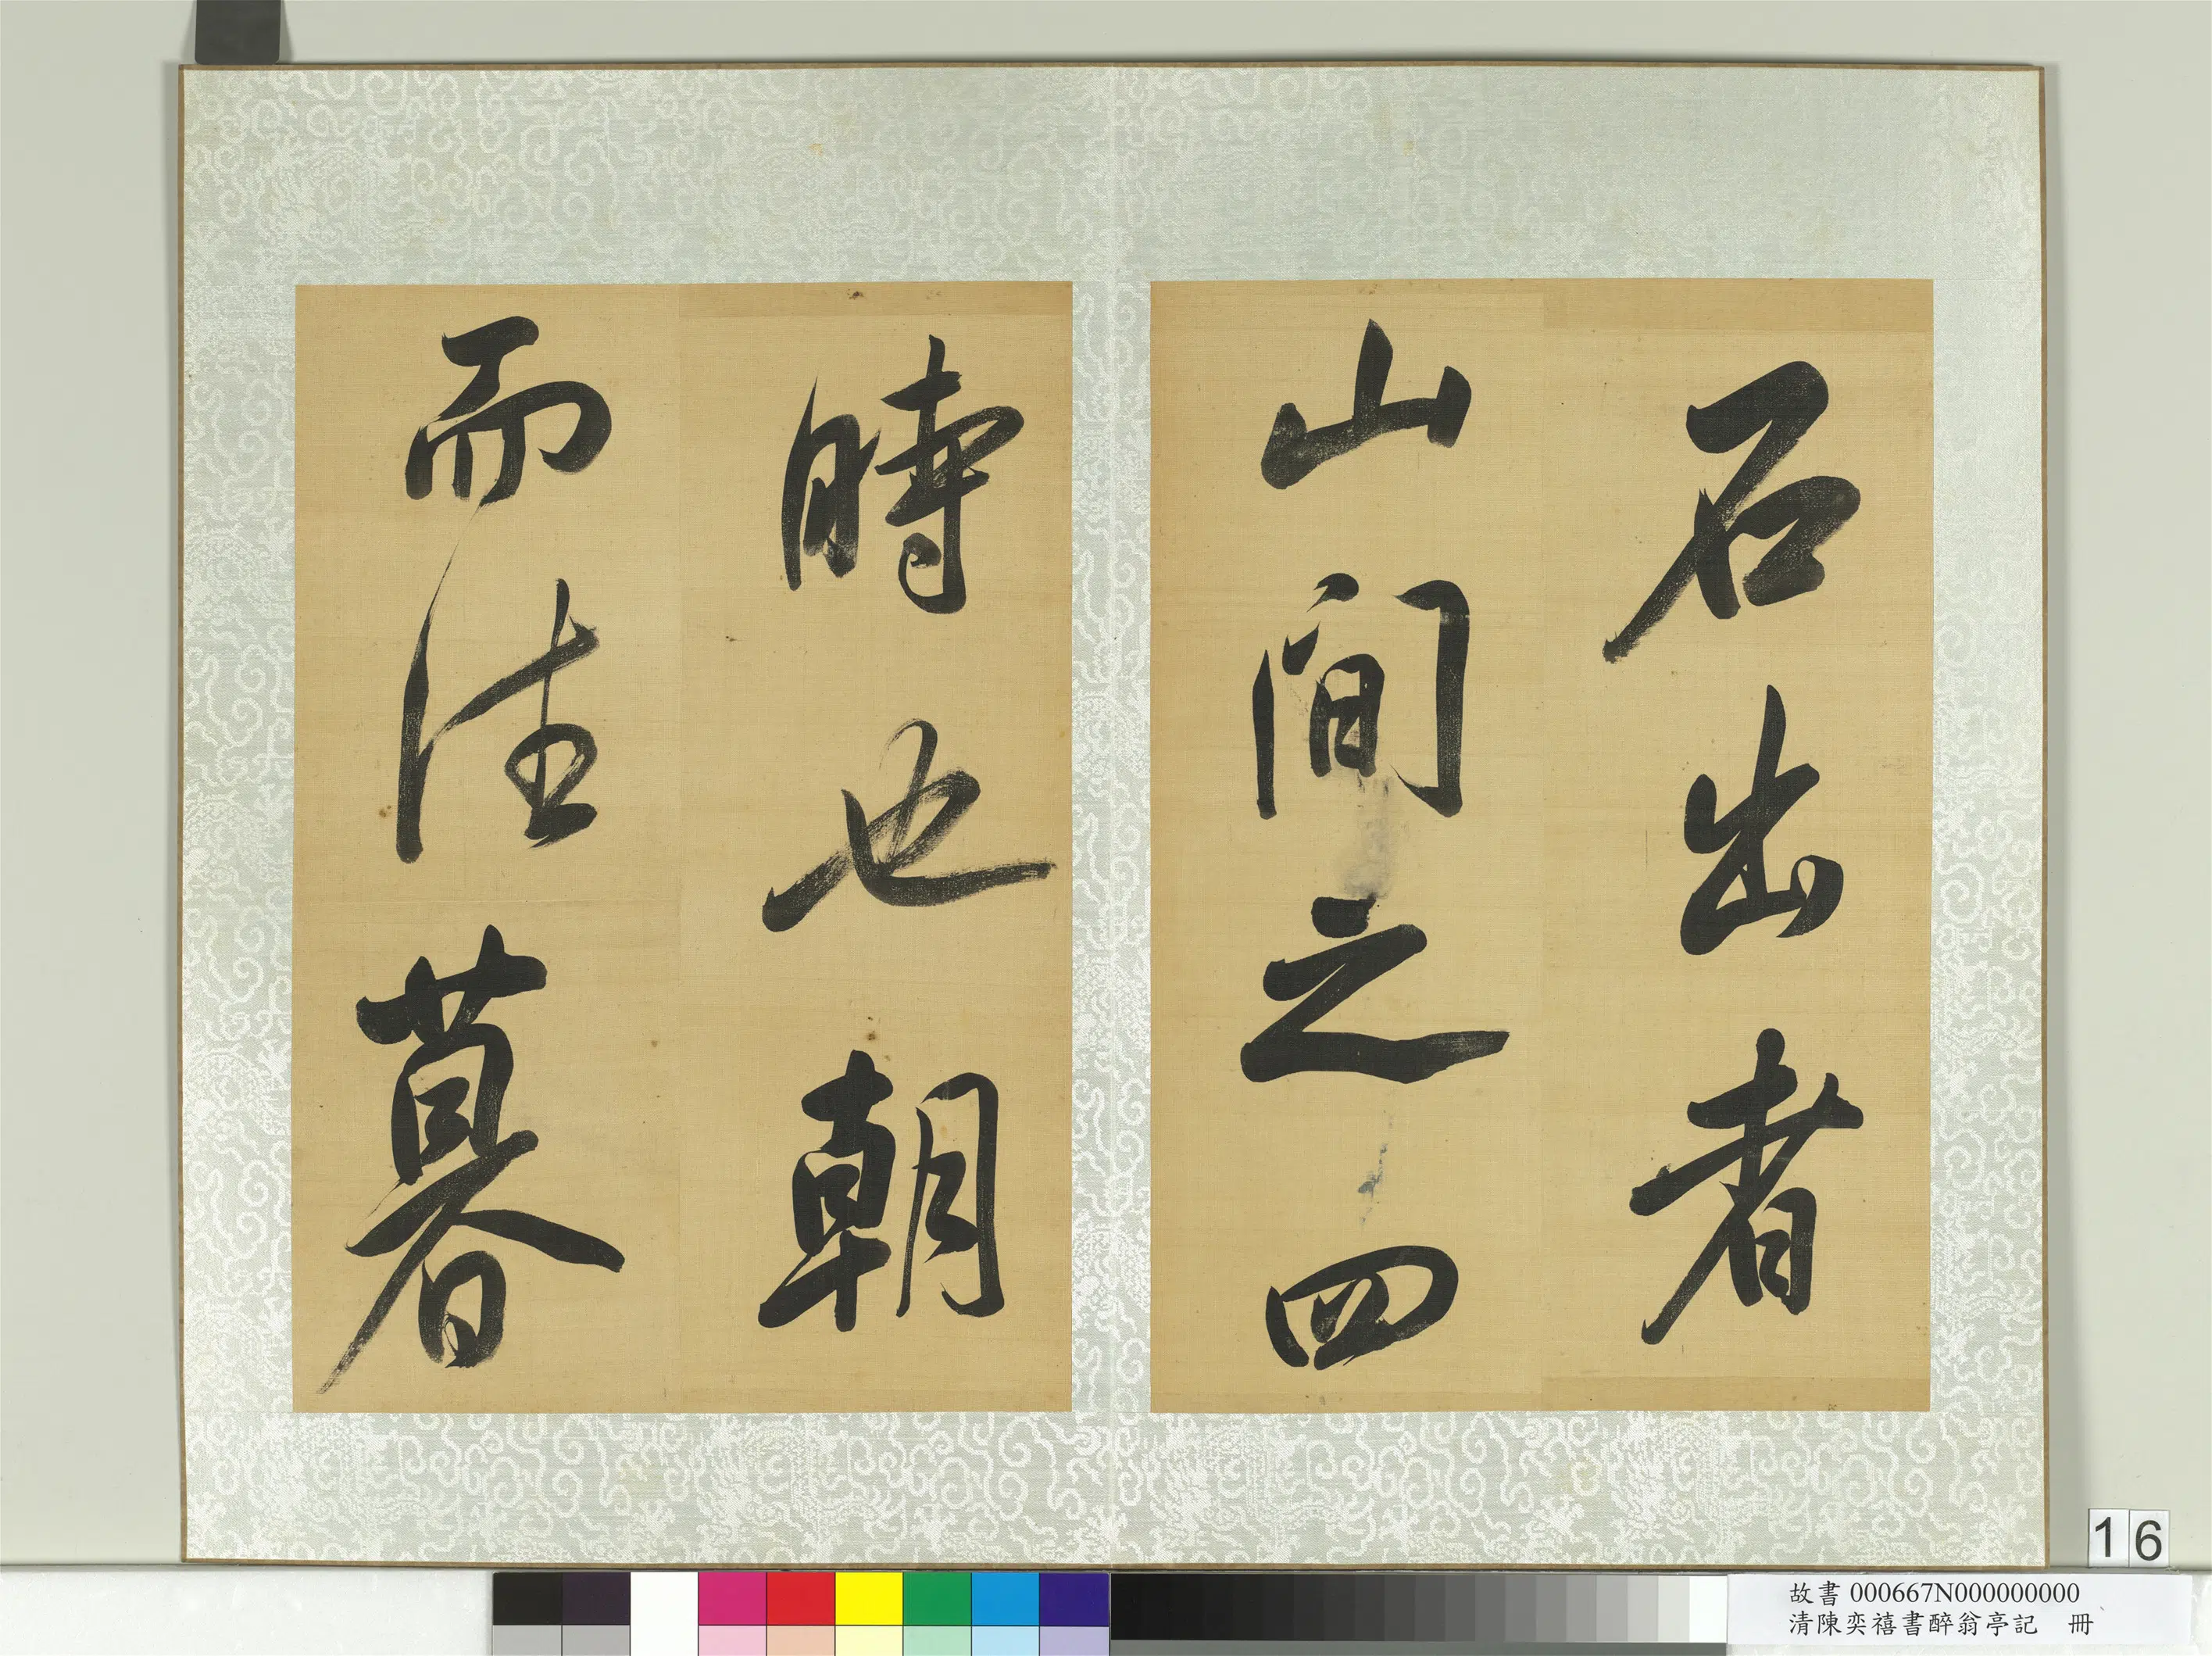 石出者
山間之四
時也朝
而往暮
16
故書 000667N000000000
清陳奕禧書醉翁亭記 冊